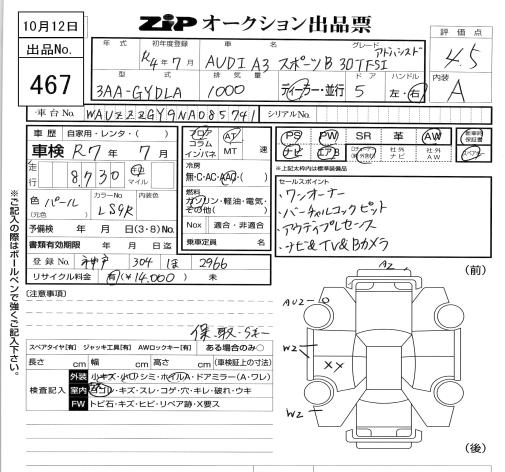 10月12日
ZIP オークション出品票
出品No.
467
年式 初年度登録 車名 グレード 評価点
R4年7月 AUDI A3 スポーツB 30TFSI アドバンスド 4.5
型式 排気量 ドア ハンドル 内装
3AA-GYDLA 1000 ディーラー・並行 5 左・右 A
車台No. WAUZZZGY9NA085741 シリアルNo.
車歴 自家用・レンタ・( )
車検 R7年7月
走行 8,730 km マイル
色(元色) パール カラーNo. LS9R 内装色
予備検 年 月 日(3・8)No.
書類有効期限 年 月 日迄
登録No. 神戸 304 ほ 2966
リサイクル料金 有(¥14,000) 未
フロア
コラム
インパネ
AT
MT 速
冷房
無・C・AC・AAC・( )
燃料
ガソリン・軽油・電気・その他( )
Nox 適合・非適合
乗車定員 名
PS PW SR 革 AW 新車時保証書
ナビ エアB 社外ナビ 社外AW
※上記太枠内は標準装備
セールスポイント
・ワンオーナー
・バーチャルコックピット
・アウディプレセンス
・ナビ&TV&Bカメラ
[注意事項]
保、取、Sキー
スペアタイヤ[有] ジャッキ工具[有] AWロックキー[有] ある場合のみ○
長さ cm 幅 cm 高さ cm (車検証上の寸法)
検査記入
外装 小キズ・小凹・シミ・ホイルA・ドアミラー(A・ワレ)
室内 ヨゴレ・キズ・スレ・コゲ・穴・キレ・破れ・ウキ
FW トビ石・キズ・ヒビ・リペア跡・X要ス
※ご記入の際はボールペンで強くご記入下さい。
(前)
A2
AU2
W2
XX
W2
(後)